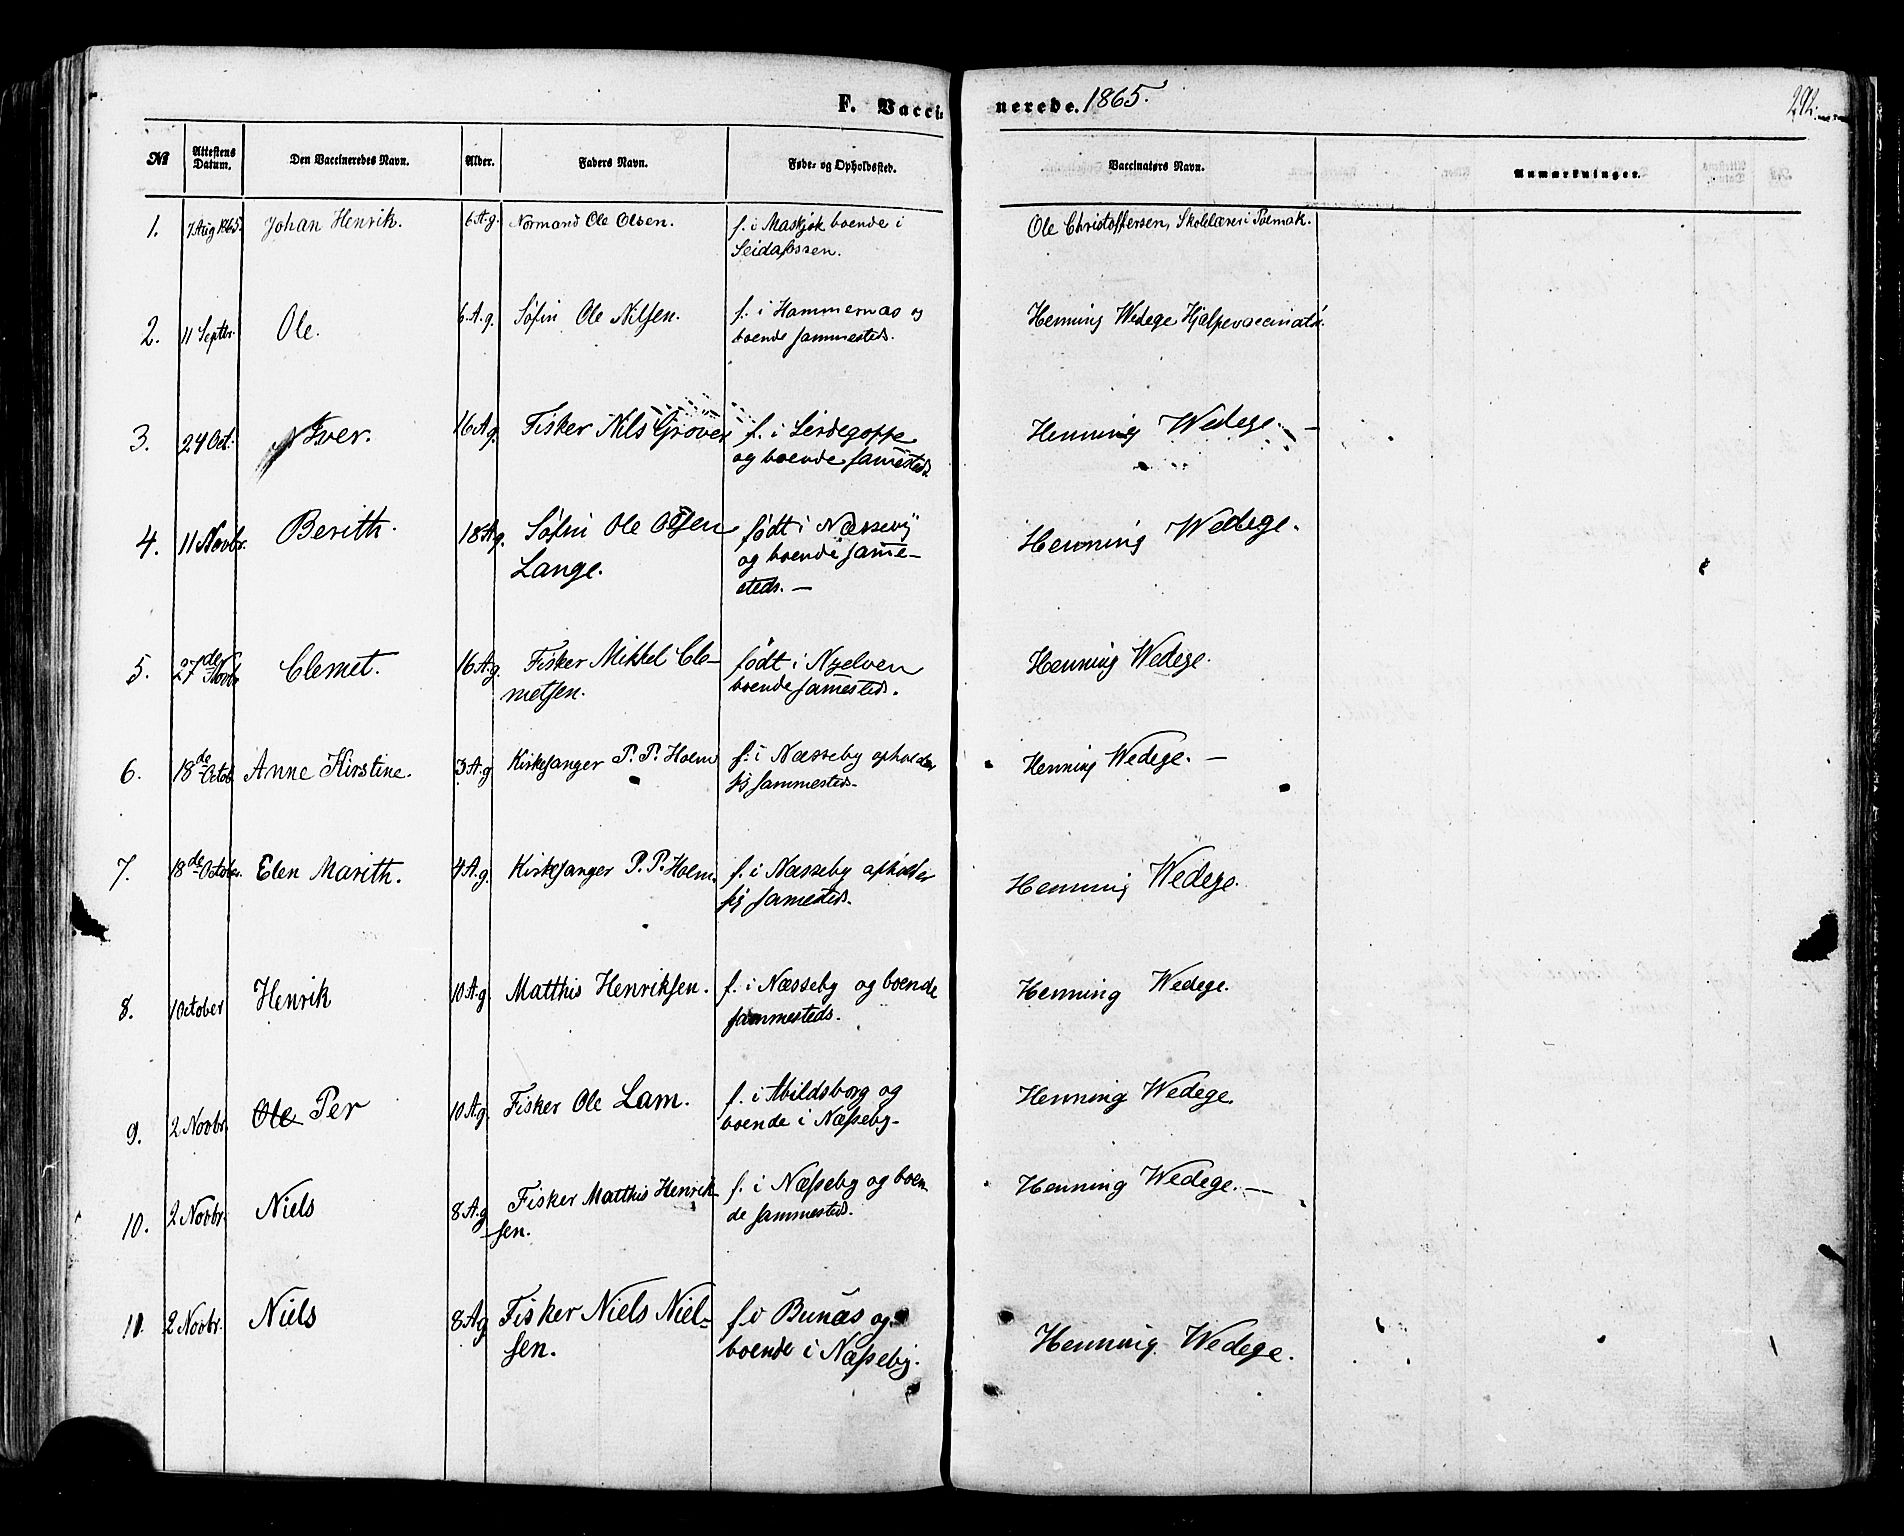 F. Vaccinerede. 1865.
No Attestens Datum. Den Vaccineredes Navn. Alder. Faders Navn. Føde- og Opholdssted. Vaccinatørs Navn. Anmærkninger.
1. 7 Aug 1865. Johan Henrik. 6 A.g. Normand Ole Olsen. f. i Maskjok boende i Ole Christoffersen, Skolelærer i Polmak.
Seidafossen.
2. 11 Septbr. Ole. 6. A. g. Søfin Ole Nilsen. f. i Hammernæs og Henning Wedege Hjælpevaccinatør.
boende sammesteds.
3. 24 Oct. Iver. 16 A.g. Fisker Nils Grøver f. i Henning Wedege. —
og boende sam̄esteds
4. 11 Novbr. Berith. 18 A.g. Søfin Ole Olsen født i Næsseby Henning Wedege.
Lange. og boende sam̄e-
steds. —
5. 27de Novb. Clemet. 16 A.g. Fisker Mikkel Cle- født i Nyelven Henning Wedege.
metsen. boende sam̄esteds.
6. 18de Octob. Anne Kirstine. 3 A.g Kirkesanger P. P. Holm f. i Næsseby opholder Henning Wedege. —
sig sammesteds.
7. 18de October. Elen Marith. 4 A.g. Kirkesanger P. P. Holm. f. i Næsseby opholder Henning Wedege.
sig sam̄esteds.
8. 1 October Henrik 10 A.g. Matthis Henriksen. f. i Næsseby og boende Henning Wedege.
sammesteds.
9. 2 Novbr. Ole Per 10 A.g. Fisker Ole Lam. f. i Abildsborg og Henning Wedege.
boende i Næsseby.
10. 2 Novbr. Niels 8 A.g Fisker Matthis Henrik- f. i Næsseby og boen Henning Wedege. —
sen. de sammesteds.
11. 2 Novbr. Niels 8 A.g Fisker Niels Niel- f. i Bunæs og Henning Wedege.
sen. boende i Næsseby.